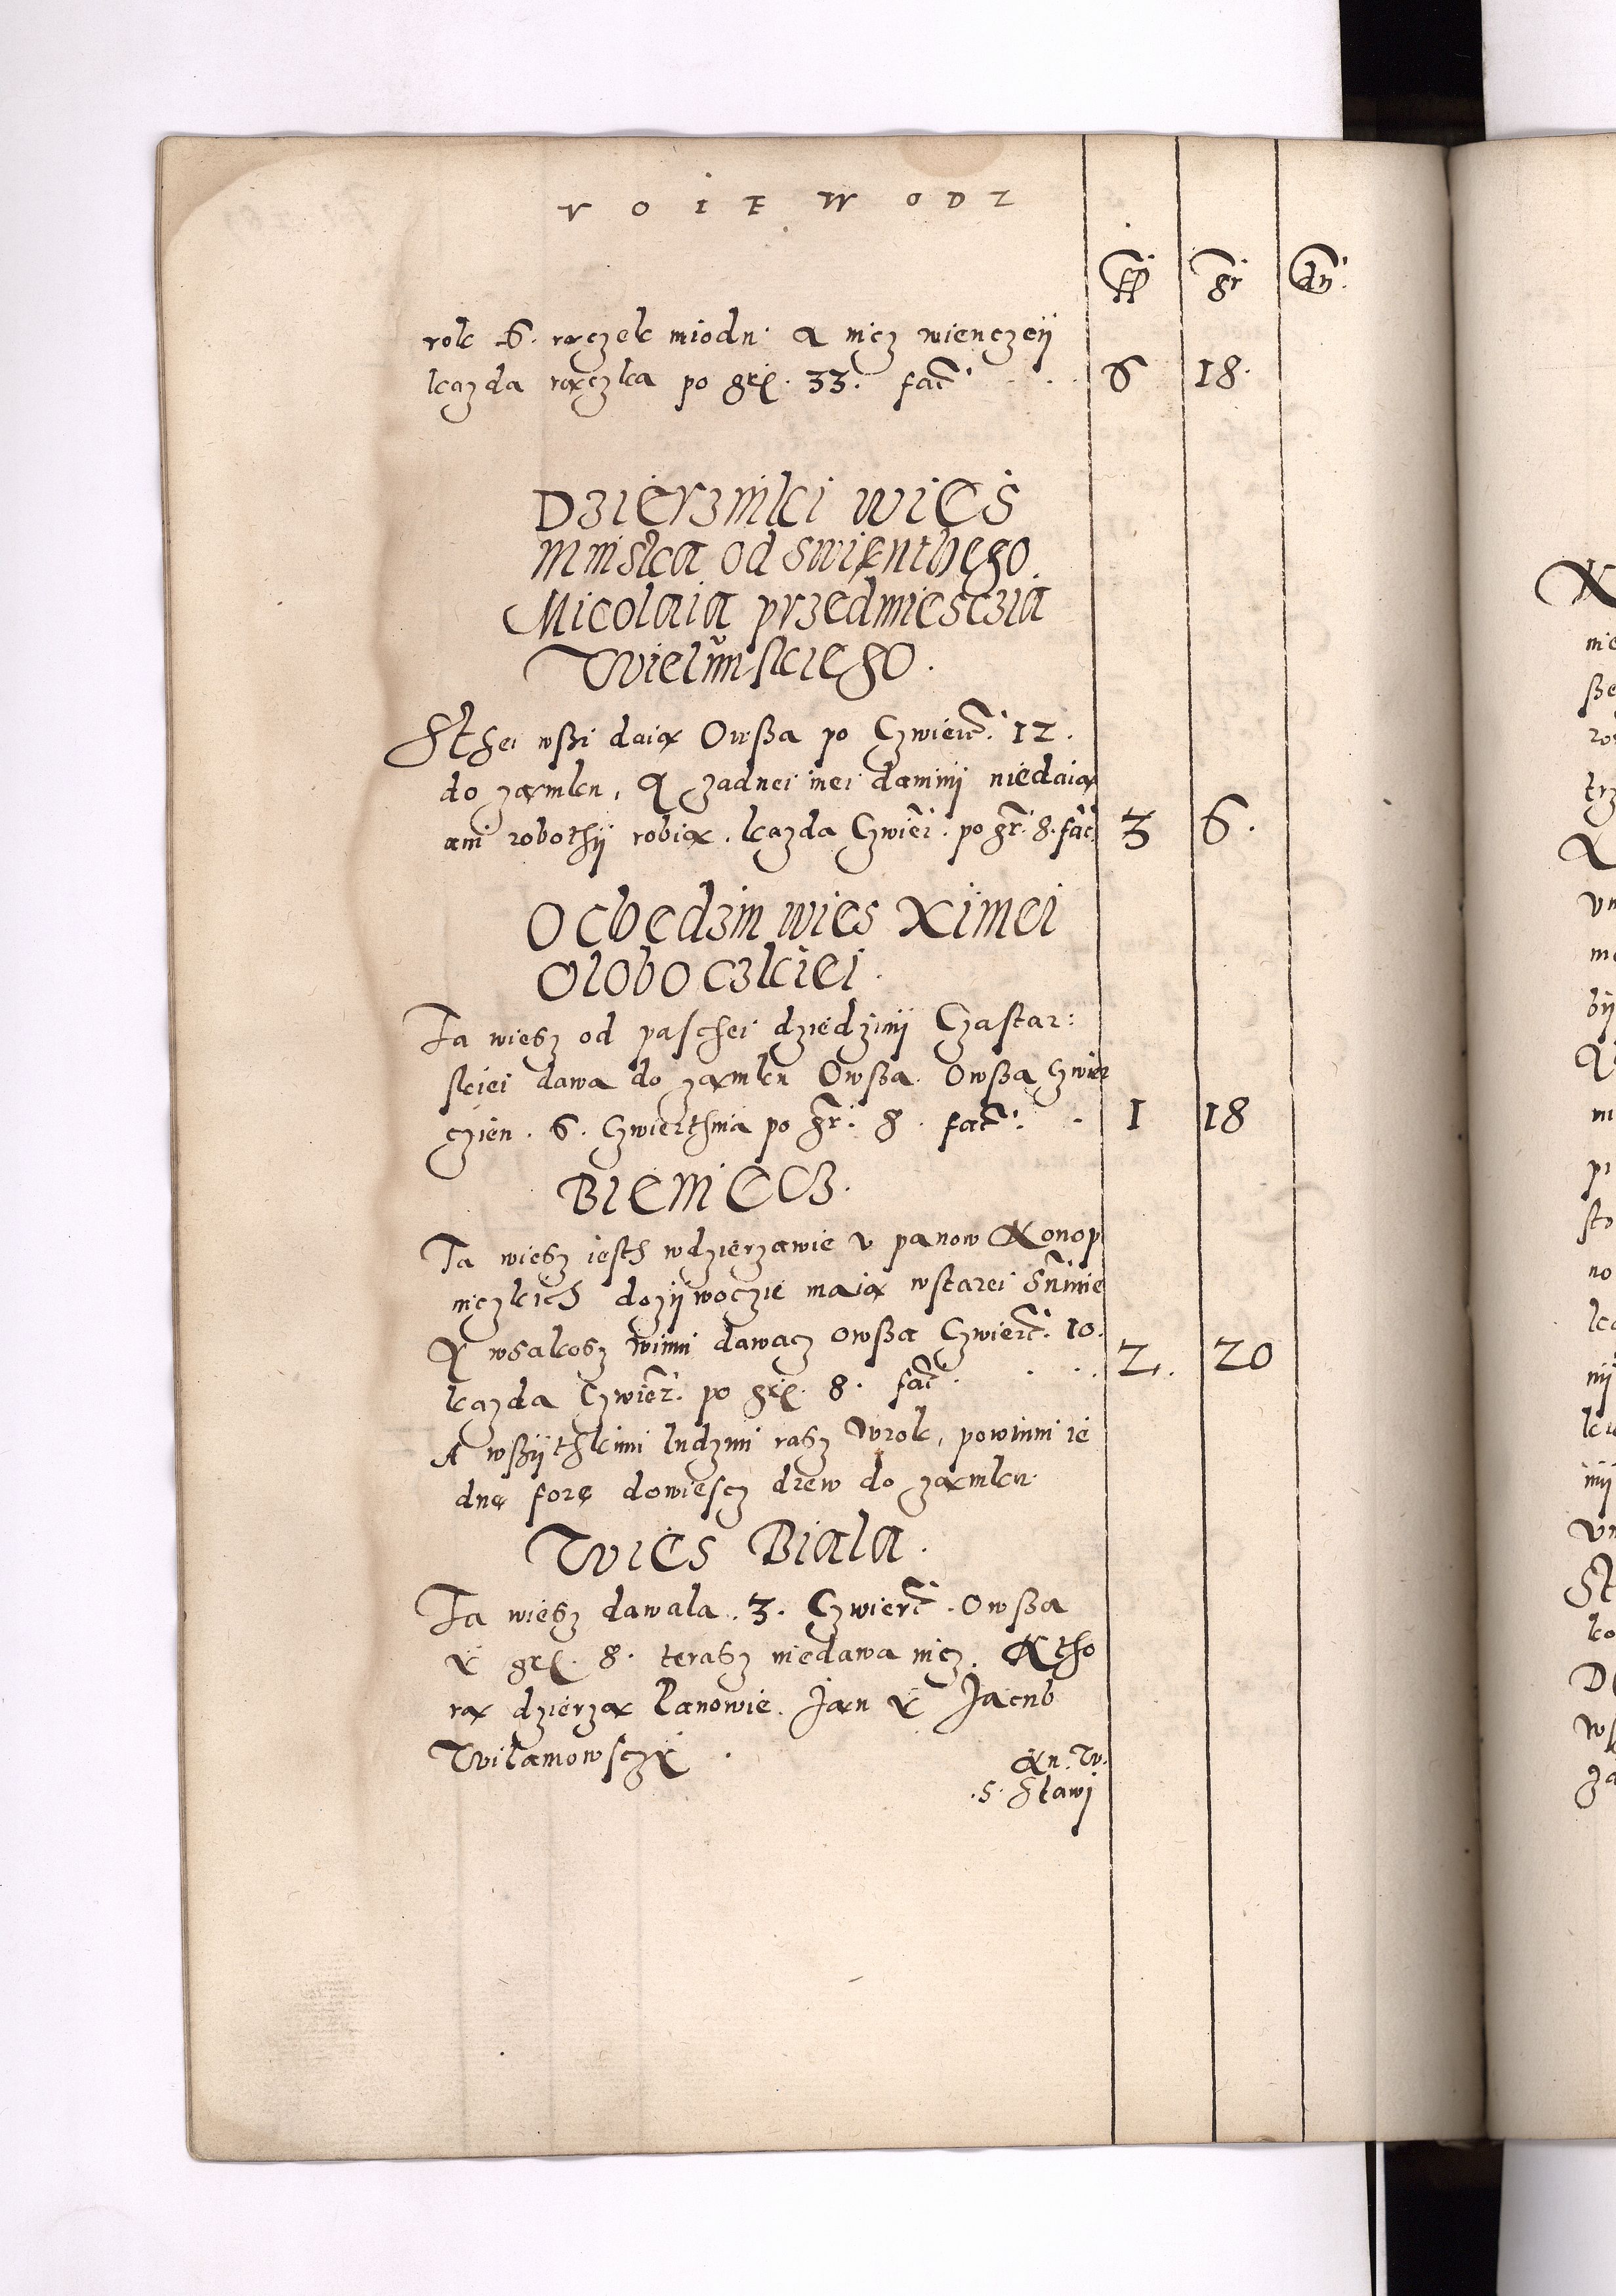 VOIEWODZ
fl gr dn
rok 6. rączek miodu. a nicz wienczeij
kazda rączka po grͦ. 33. fac. 6 18.
Dzierzniki wies
Mniska od swienthego
Micolaia przedmiesczia
Wielunskiego.
Sthei wßi daią Owßa po Czwierc. 12.
do zamku, A zadnei inei daninij niedaią
ani robothij robią. kazda Czwier. po gr. 8. fac 3 6.
Ochedzin wies Xijnieі
Oloboczkiei.
Ta wiesz od paschei dziedzinij Czastar:
skiei dawa do zamku Owßa. Owßa Czwier
czien. 6. Czwierthnia po gr. 8. fact. 1 18
Biemiecz.
Ta wiesz iesth wdzierzawie v panow Konop
niczkich dozijwoczie maią wstarei Summie
A wsakosz winni dawacz owßa Czwierc. 10.
kazda Czwier. po gr. 8. fac. 2. 20
A wßijthkimi ludzmi rasz wrok, powinni ie
dnę forę dowiescz drew do zamku.
Wies Biala.
Ta wiesz dawala. 3. Czwierc. Owßa
Y gr. 8. terasz niedawa nicz. Ktho
rą dzierzą Panowie. Jan Y Jacub
Wilamowsczy.
s. Stawi